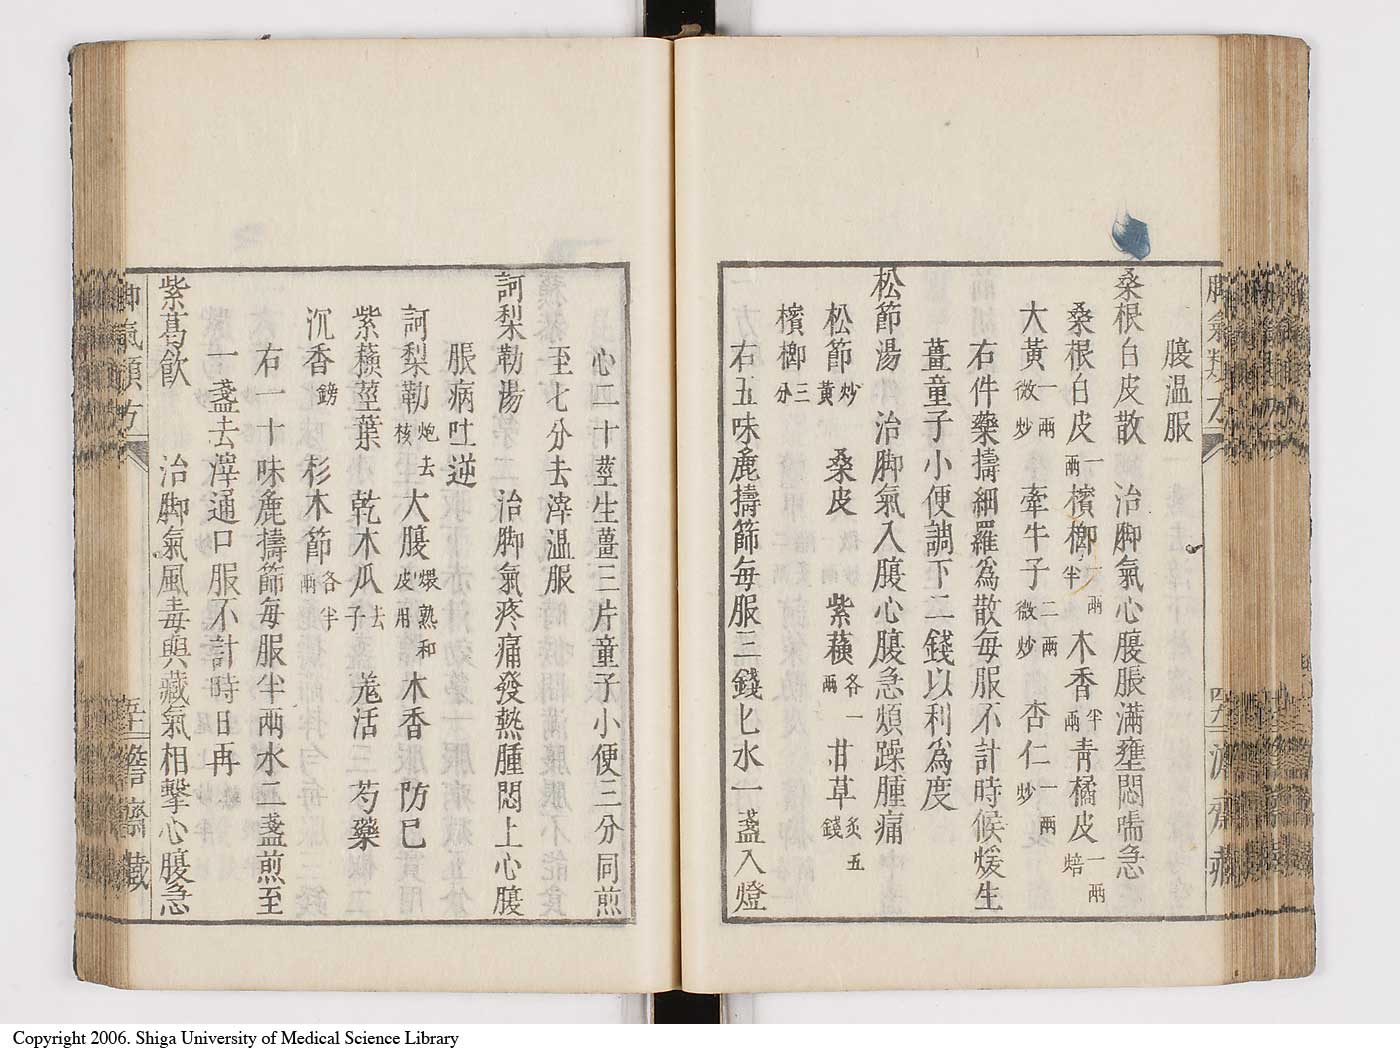 腹温服
桑根白皮散 治脚氣心腹脹滿壅悶喘急
桑根白皮一兩 檳榔一兩半 木香半兩 青橘皮一兩焙
大黃一兩微炒 牽牛子二兩微炒 杏仁一兩炒
右件藥擣細羅爲散每服不計時候煖生
薑童子小便調下二錢以利爲度
松節湯 治脚氣入腹心腹急煩躁腫痛
松節炒黃 桑皮 紫蘓各一兩 甘草炙五錢
檳榔三分
右五味麁擣篩每服三錢匕水一盞入燈
心二十莖生薑三片童子小便三分同煎
至七分去滓温服
訶梨勒湯 治脚氣疼痛發熱腫悶上心腹
脹病吐逆
訶梨勒炮去核 大腹煨熟和皮用 木香 防巳
紫蘓莖葉 乾木瓜去子 羌活 芍藥
沉香鎊 杉木節各半兩
右一十味麁擣篩每服半兩水二盞煎至
一盞去滓通口服不計時日再
紫葛飮 治脚氣風毒與藏氣相擊心腹急
脚氣類方
濟齋藏
Copyright 2006. Shiga University of Medical Science Library